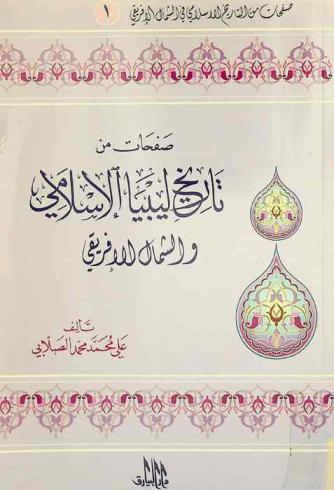 صفحات من التاريخ الاسلامي في الشمال الإفريقي
١
صفحات من
تاريخ ليبيا الإسلامي
والشمال الإفريقي
تأليف
علي محمد محمد الصلابي
دار البيارق